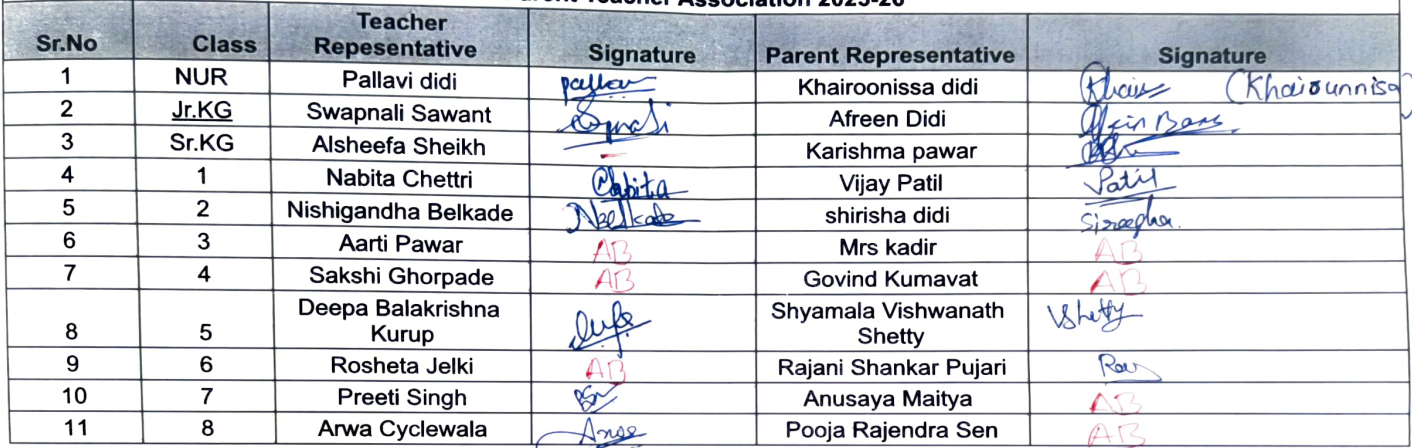 Parent Teacher Association 2025-26
Sr.No Class Teacher Repesentative Signature Parent Representative Signature
1 NUR Pallavi didi pallavi Khairoonissa didi Khair (Khairounnisa)
2 Jr.KG Swapnali Sawant Afreen Didi
3 Sr.KG Alsheefa Sheikh - Karishma pawar
4 1 Nabita Chettri Nabita Vijay Patil Patil
5 2 Nishigandha Belkade NBelkade shirisha didi
6 3 Aarti Pawar AB Mrs kadir AB
7 4 Sakshi Ghorpade AB Govind Kumavat AB
8 5 Deepa Balakrishna Kurup Shyamala Vishwanath Shetty VShetty
9 6 Rosheta Jelki AB Rajani Shankar Pujari
10 7 Preeti Singh Anusaya Maitya AB
11 8 Arwa Cyclewala Pooja Rajendra Sen AB